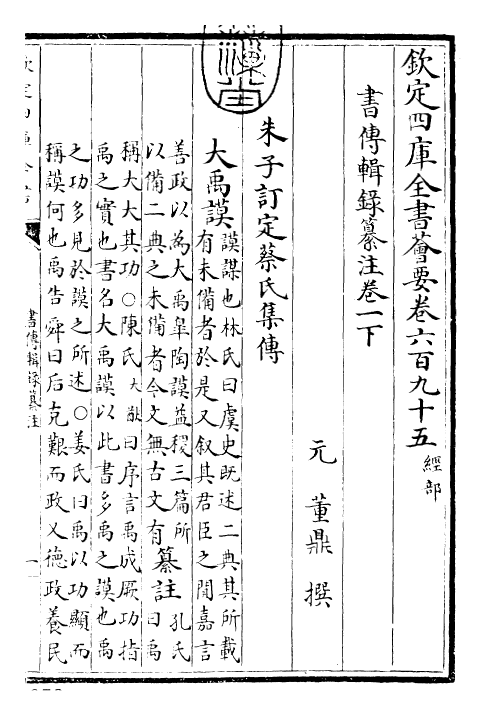 欽定四庫全書薈要卷六百九十五 經部
書傳輯錄纂注卷一下
元 董鼎 撰
朱子訂定蔡氏集傳
大禹謨
謨謀也林氏曰虞史既述二典其所載
有未備者於是又叙其君臣之間嘉言
善政以為大禹皐陶謨益稷三篇所
以備二典之未備者今文無古文有
纂註
孔氏
曰禹
稱大大其功○陳氏大猷曰序言禹成厥功指
禹之實也書名大禹謨以此書多禹之謨也禹
之功多見於謨之所述○姜氏曰禹以功顯而
稱謨何也禹告舜曰后克艱而政乂德政養民
書傳輯錄纂註
一